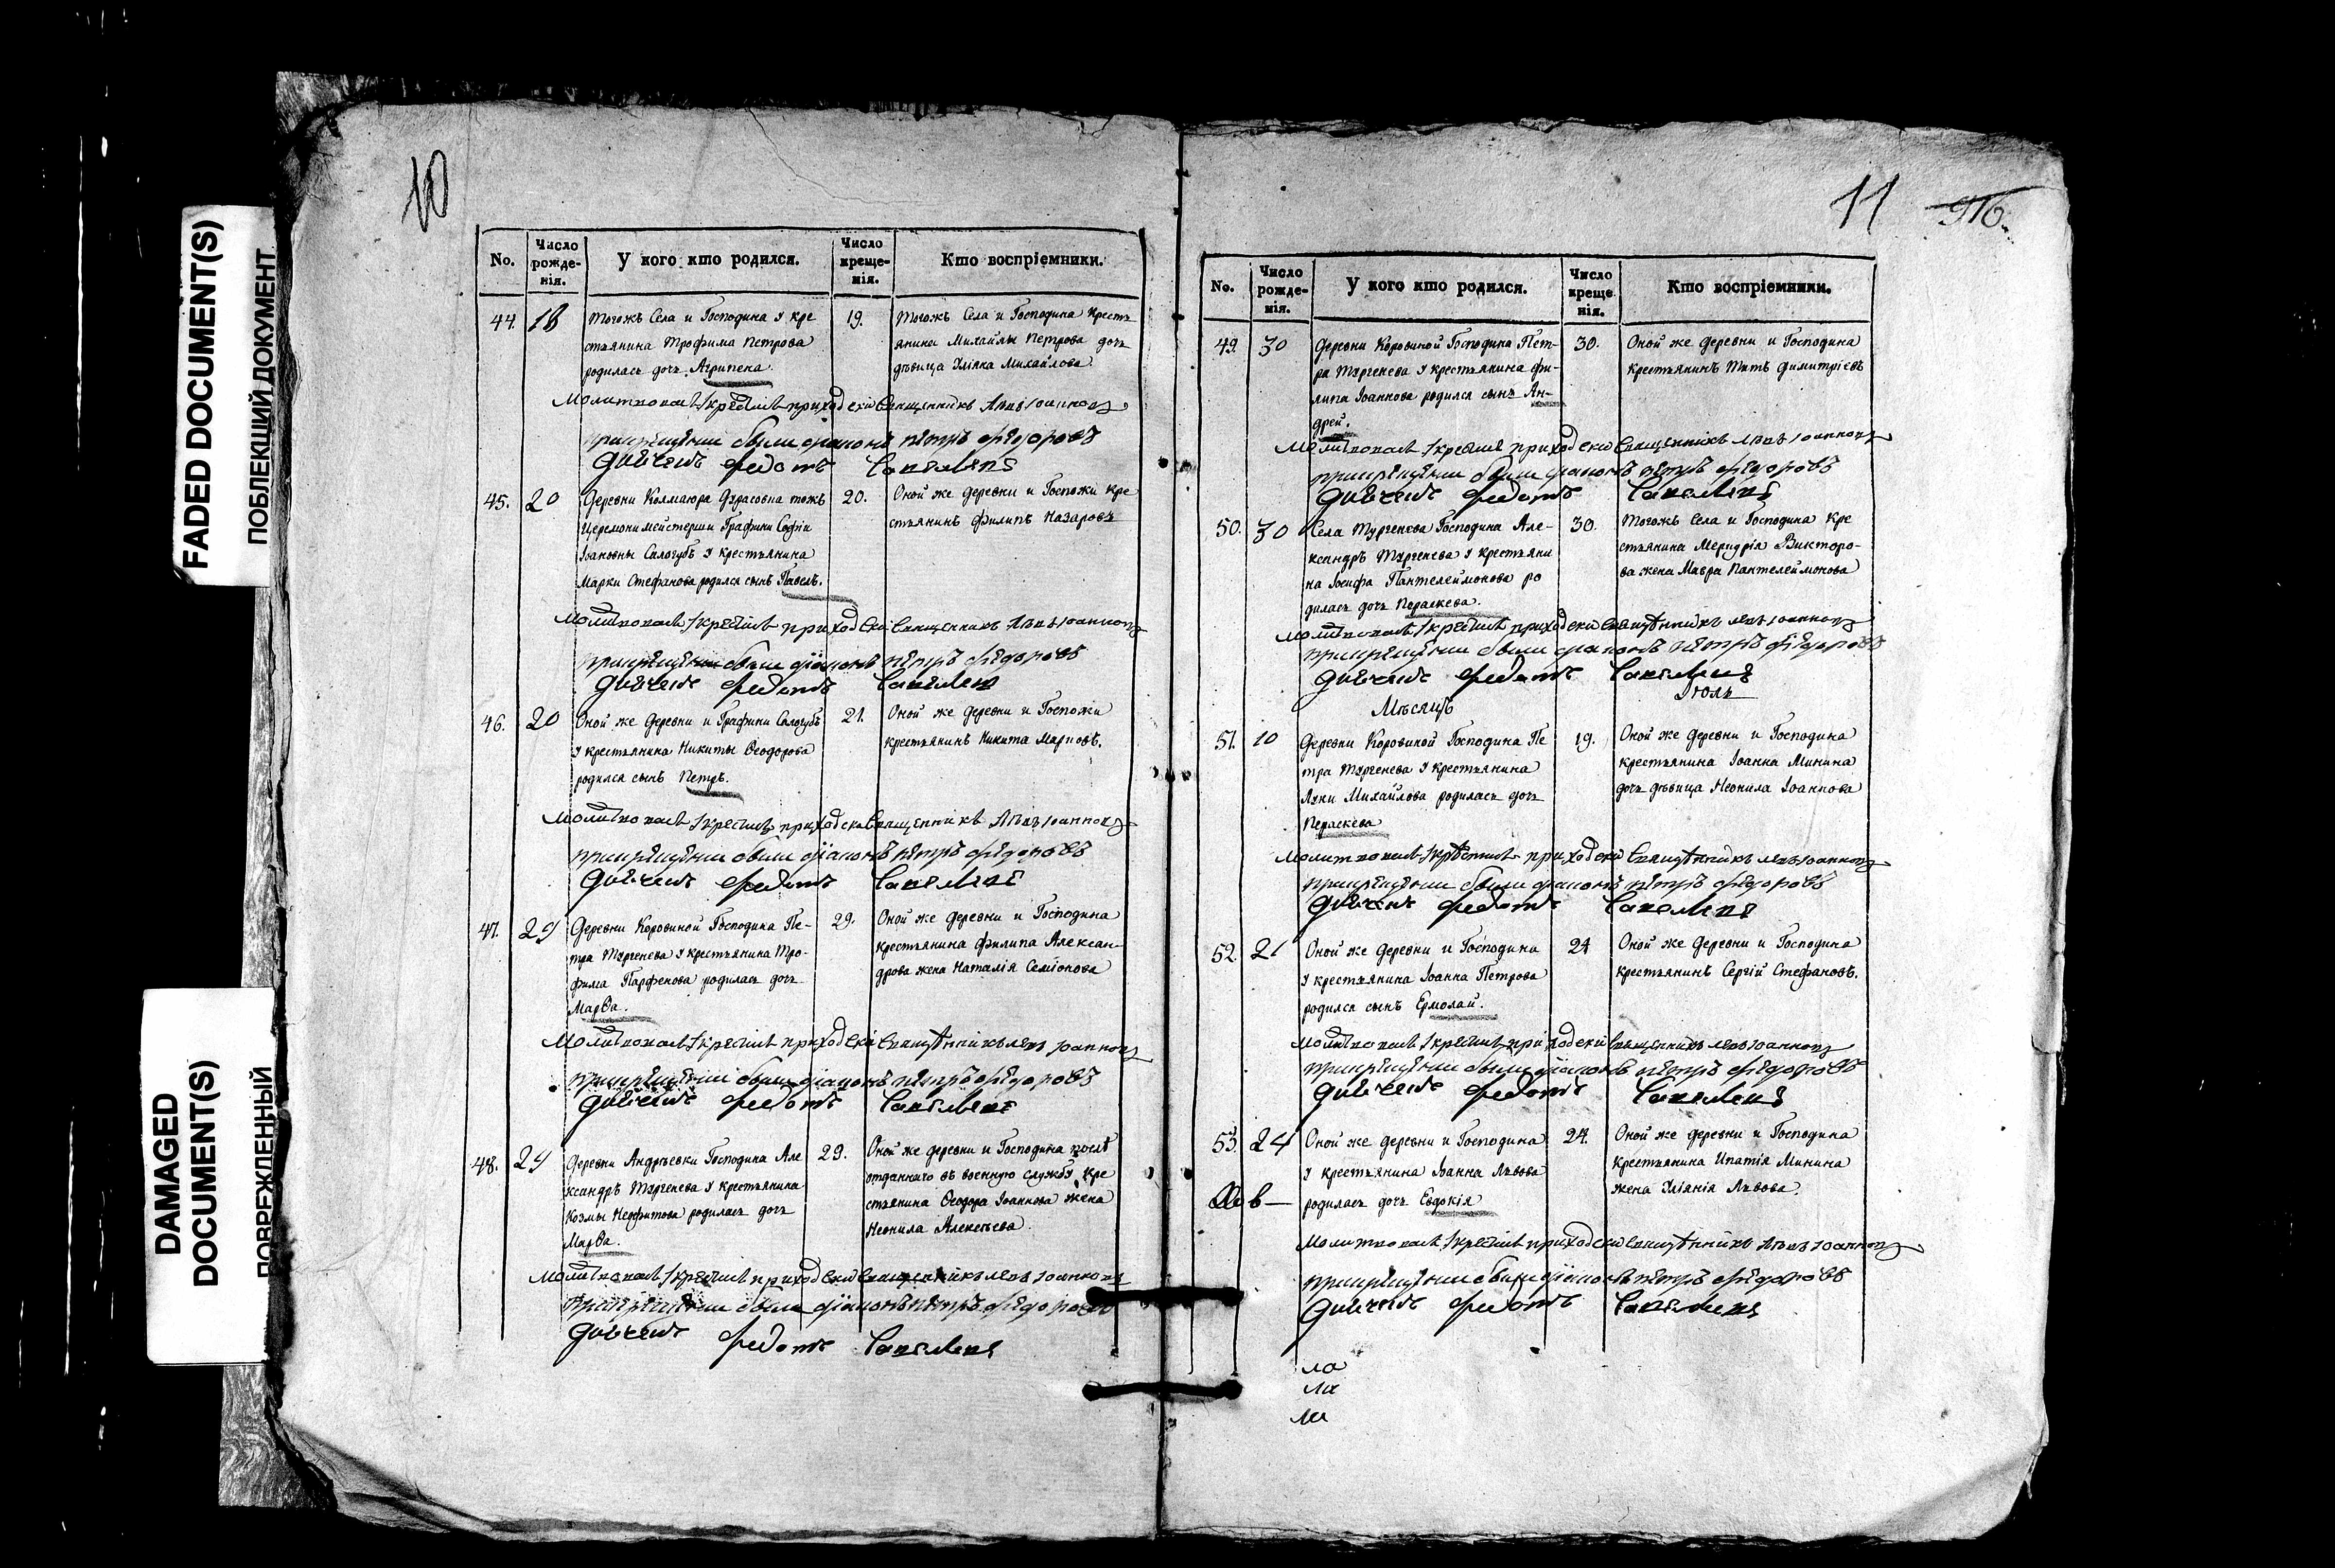 FADED DOCUMENT(S)
ПОБЛЕКШИЙ ДОКУМЕНТ
DAMAGED
DOCUMENT(S)
ПОВРЕЖДЕННЫЙ
10
No.
Число
рожде-
нія.
У кого кто родился.
Число
креще-
нія.
Кто воспріемники.
44.
18
Тогожъ Села и Господина у кре
стьянина Трофима Петрова
родилась дочь Агрипена.
19.
Тогожъ Села и Господина крестъ
янина Михайлы Петрова дочь
дѣвица Уліяна Михайлова
Молитвовалъ и крестилъ приходскій Священникъ Левъ Іоанновъ
при крещеніи были діаконъ петръ федоровъ
Дьячекъ федотъ
45.
20
Деревни Колмаюра Дурасовка тожъ
Церемонимейстерши Графини Софіи
Іоановны Сологубъ у крестьянина
Марки Стефанова родился сынъ Павелъ.
20.
Оной же деревни и Госпожи кре
стьянинъ Филипъ Назаровъ
Молитвовалъ и крестилъ приходскій Священникъ Левъ Іоанновъ
при крещеніи были діаконъ петръ федоровъ
Дьячекъ федотъ
46.
20
Оной же деревни и Графини Сологубъ
у крестьянина Никиты Ѳеодорова
родился сынъ Петръ.
21.
Оной же деревни и Госпожи
крестьянинъ Никита Марковъ.
Молитвовалъ и крестилъ приходскій Священникъ Левъ Іоанновъ
при крещеніи были діаконъ петръ федоровъ
Дьячекъ федотъ
47.
29
Деревни Коровиной Господина Пе-
тра Тургенева у крестьянина Тро-
фима Парфенова родилась дочь
Марѳа.
29.
Оной же деревни и Господина
крестьянина Филипа Алексан-
дрова жена Наталія Семіонова
Молитвовалъ и крестилъ приходскій Священникъ левъ Іоанновъ
при крещеніи были діаконъ петръ федоровъ
Дьячекъ федотъ
48.
29
Деревни Андрѣевки Господина Але
ксандръ Тургенева у крестьянина
Козмы Неофитова родилась дочь
Марѳа.
29.
Оной же деревни и Господина после
отданнаго въ военную службу кре
стьянина Ѳеодора Іоаннова жена
Неонила Алексѣева.
Молитвовалъ и крестилъ приходскій Священникъ левъ Іоанновъ
при крещеніи были діаконъ петръ федоровъ
Дьячекъ федотъ
11
No.
Число
рожде-
нія.
У кого кто родился.
Число
креще
нія.
Кто воспріемники.
49.
30
Деревни Коровиной Господина Пет-
ра Тургенева у крестьянина Фи-
липа Іоаннова родился сынъ Ан-
дрей.
30.
Оной же деревни и Господина
крестьянинъ Титъ Димитріевъ
Молитвовалъ и крестилъ приходскій Священникъ левъ Іоанновъ
при крещеніи были діаконъ петръ федоровъ
Дьячекъ федотъ
50.
30
Села Тургенева Господина Але-
ксандръ Тургенева у крестьяни
на Іосифа Пантелеймонова ро
дилась дочь Пераскева.
30.
Тогожъ Села и Господина кре
стьянина Викторо-
ва жена Мавра Пантелеймонова
Молитвовалъ и крестилъ приходскій Священникъ левъ Іоанновъ
при крещеніи были діаконъ петръ федоровъ
Дьячекъ федотъ
Мѣсяцъ Іюль
51.
10
Деревни Коровиной Господина Пе
тра Тургенева у крестьянина
Луки Михайлова родилась дочь
Пераскева
19.
Оной же деревни и Господина
крестьянина Іоанна Минина
дочь дѣвица Неонила Іоаннова
Молитвовалъ и крестилъ приходскій Священникъ левъ Іоанновъ
при крещеніи были діаконъ петръ федоровъ
Дьячекъ федотъ
52.
21
Оной же деревни и Господина
у крестьянина Іоанна Петрова
родился сынъ Ермолай.
24
Оной же деревни и Господина
крестьянинъ Сергій Стефановъ.
Молитвовалъ и крестилъ приходскій Священникъ левъ Іоанновъ
при крещеніи были діаконъ петръ федоровъ
Дьячекъ федотъ
53.
24
Оной же деревни и Господина
у крестьянина Іоанна Львова
родилась дочь Евдокія
24.
Оной же деревни и Господина
крестьянина Ипатія Минина
жена Уліянія Львова.
Молитвовалъ и крестилъ приходскій Священникъ Левъ Іоанновъ
при крещеніи были діаконъ петръ федоровъ
Дьячекъ федотъ
ла
ла
ла